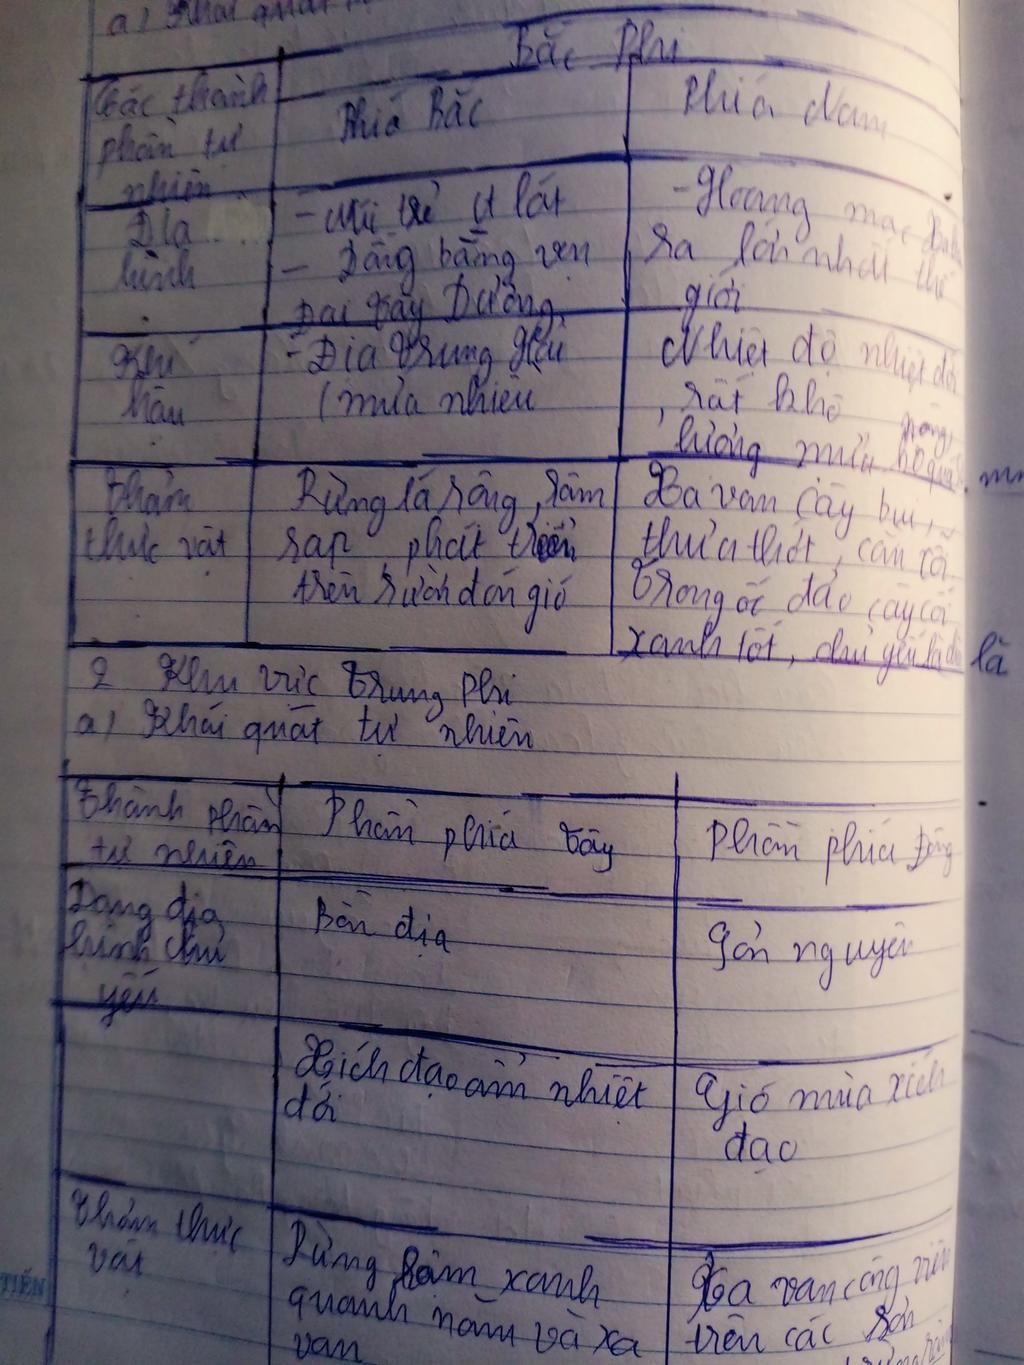 a) Khái quát
Bắc Phi
Các thành
phần tự
nhiên
Phía Bắc
Phía Nam
Địa
hình
- Núi trẻ At lát
- Đồng bằng ven
Đại Tây Dương
- Hoang mạc
ra lớn nhất thế
giới
Khí
hậu
- Địa Trung Hải
(mưa nhiều
Nhiệt độ nhiệt đới
, rất khô nóng,
lượng mưa ko quá
Thảm
thực vật
Rừng lá rộng, rậm
rạp phát triển
trên sườn đón gió
Xa van cây bụi,
thưa thớt, cằn cỗi
Trong ốc đảo cây cối
xanh tốt, chủ yếu là
là
2 Khu vực Trung Phi
a) Khái quát tự nhiên
Thành phần
tự nhiên
Phần phía Tây
Phần phía Đông
Dạng địa
hình chủ
yếu
Bồn địa
Sơn nguyên
Xích đạo ẩm nhiệt
đới
Gió mùa xích
đạo
Thảm thực
vật
Rừng rậm xanh
quanh năm và xa
van
Xa van công viên
trên các sơn